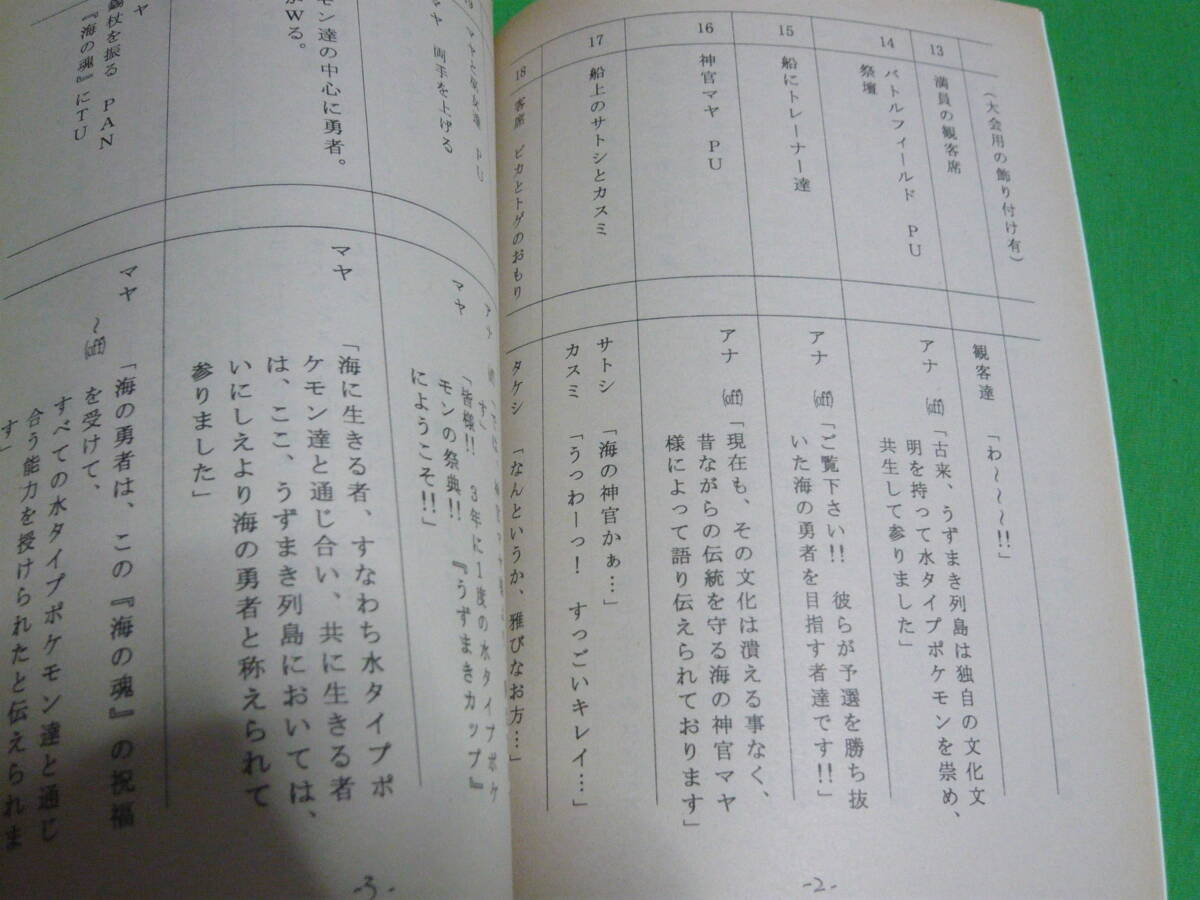 （大会用の飾り付け有）
13
満員の観客席
観客達　「わ〜〜〜!!」
14
バトルフィールド　PU
祭壇
アナ　(off)「古来、うずまき列島は独自の文化文
明を持って水タイプポケモンを崇め、
共生して参りました」
15
船にトレーナー達
アナ　(off)「ご覧下さい!!　彼らが予選を勝ち抜
いた海の勇者を目指す者達です!!」
16
神官マヤ　PU
アナ　(off)「現在も、その文化は潰える事なく、
昔ながらの伝統を守る海の神官マヤ
様によって語り伝えられております」
17
船上のサトシとカスミ
サトシ　「海の神官かぁ…」
カスミ　「うっわーっ！　すっごいキレイ…」
18
客席　ピカとトゲのおもり
タケシ　「なんというか、雅びなお方…」
-2-
PU
マヤ　両手を上げる
す」
マヤ　「皆様!!　3年に1度の水タイプポケ
モンの祭典!!　『うずまきカップ』
にようこそ!!」
モン達の中心に勇者。
W る。
マヤ　「海に生きる者、すなわち水タイプポ
ケモン達と通じ合い、共に生きる者
は、ここ、うずまき列島においては、
いにしえより海の勇者と称えられて
参りました」
ヤ
錫杖を振る　PAN
『海の魂』にTU
マヤ　「海の勇者は、この『海の魂』の祝福
〜(off)　を受けて、
すべての水タイプポケモン達と通じ
合う能力を授けられたと伝えられま
す」
-3-